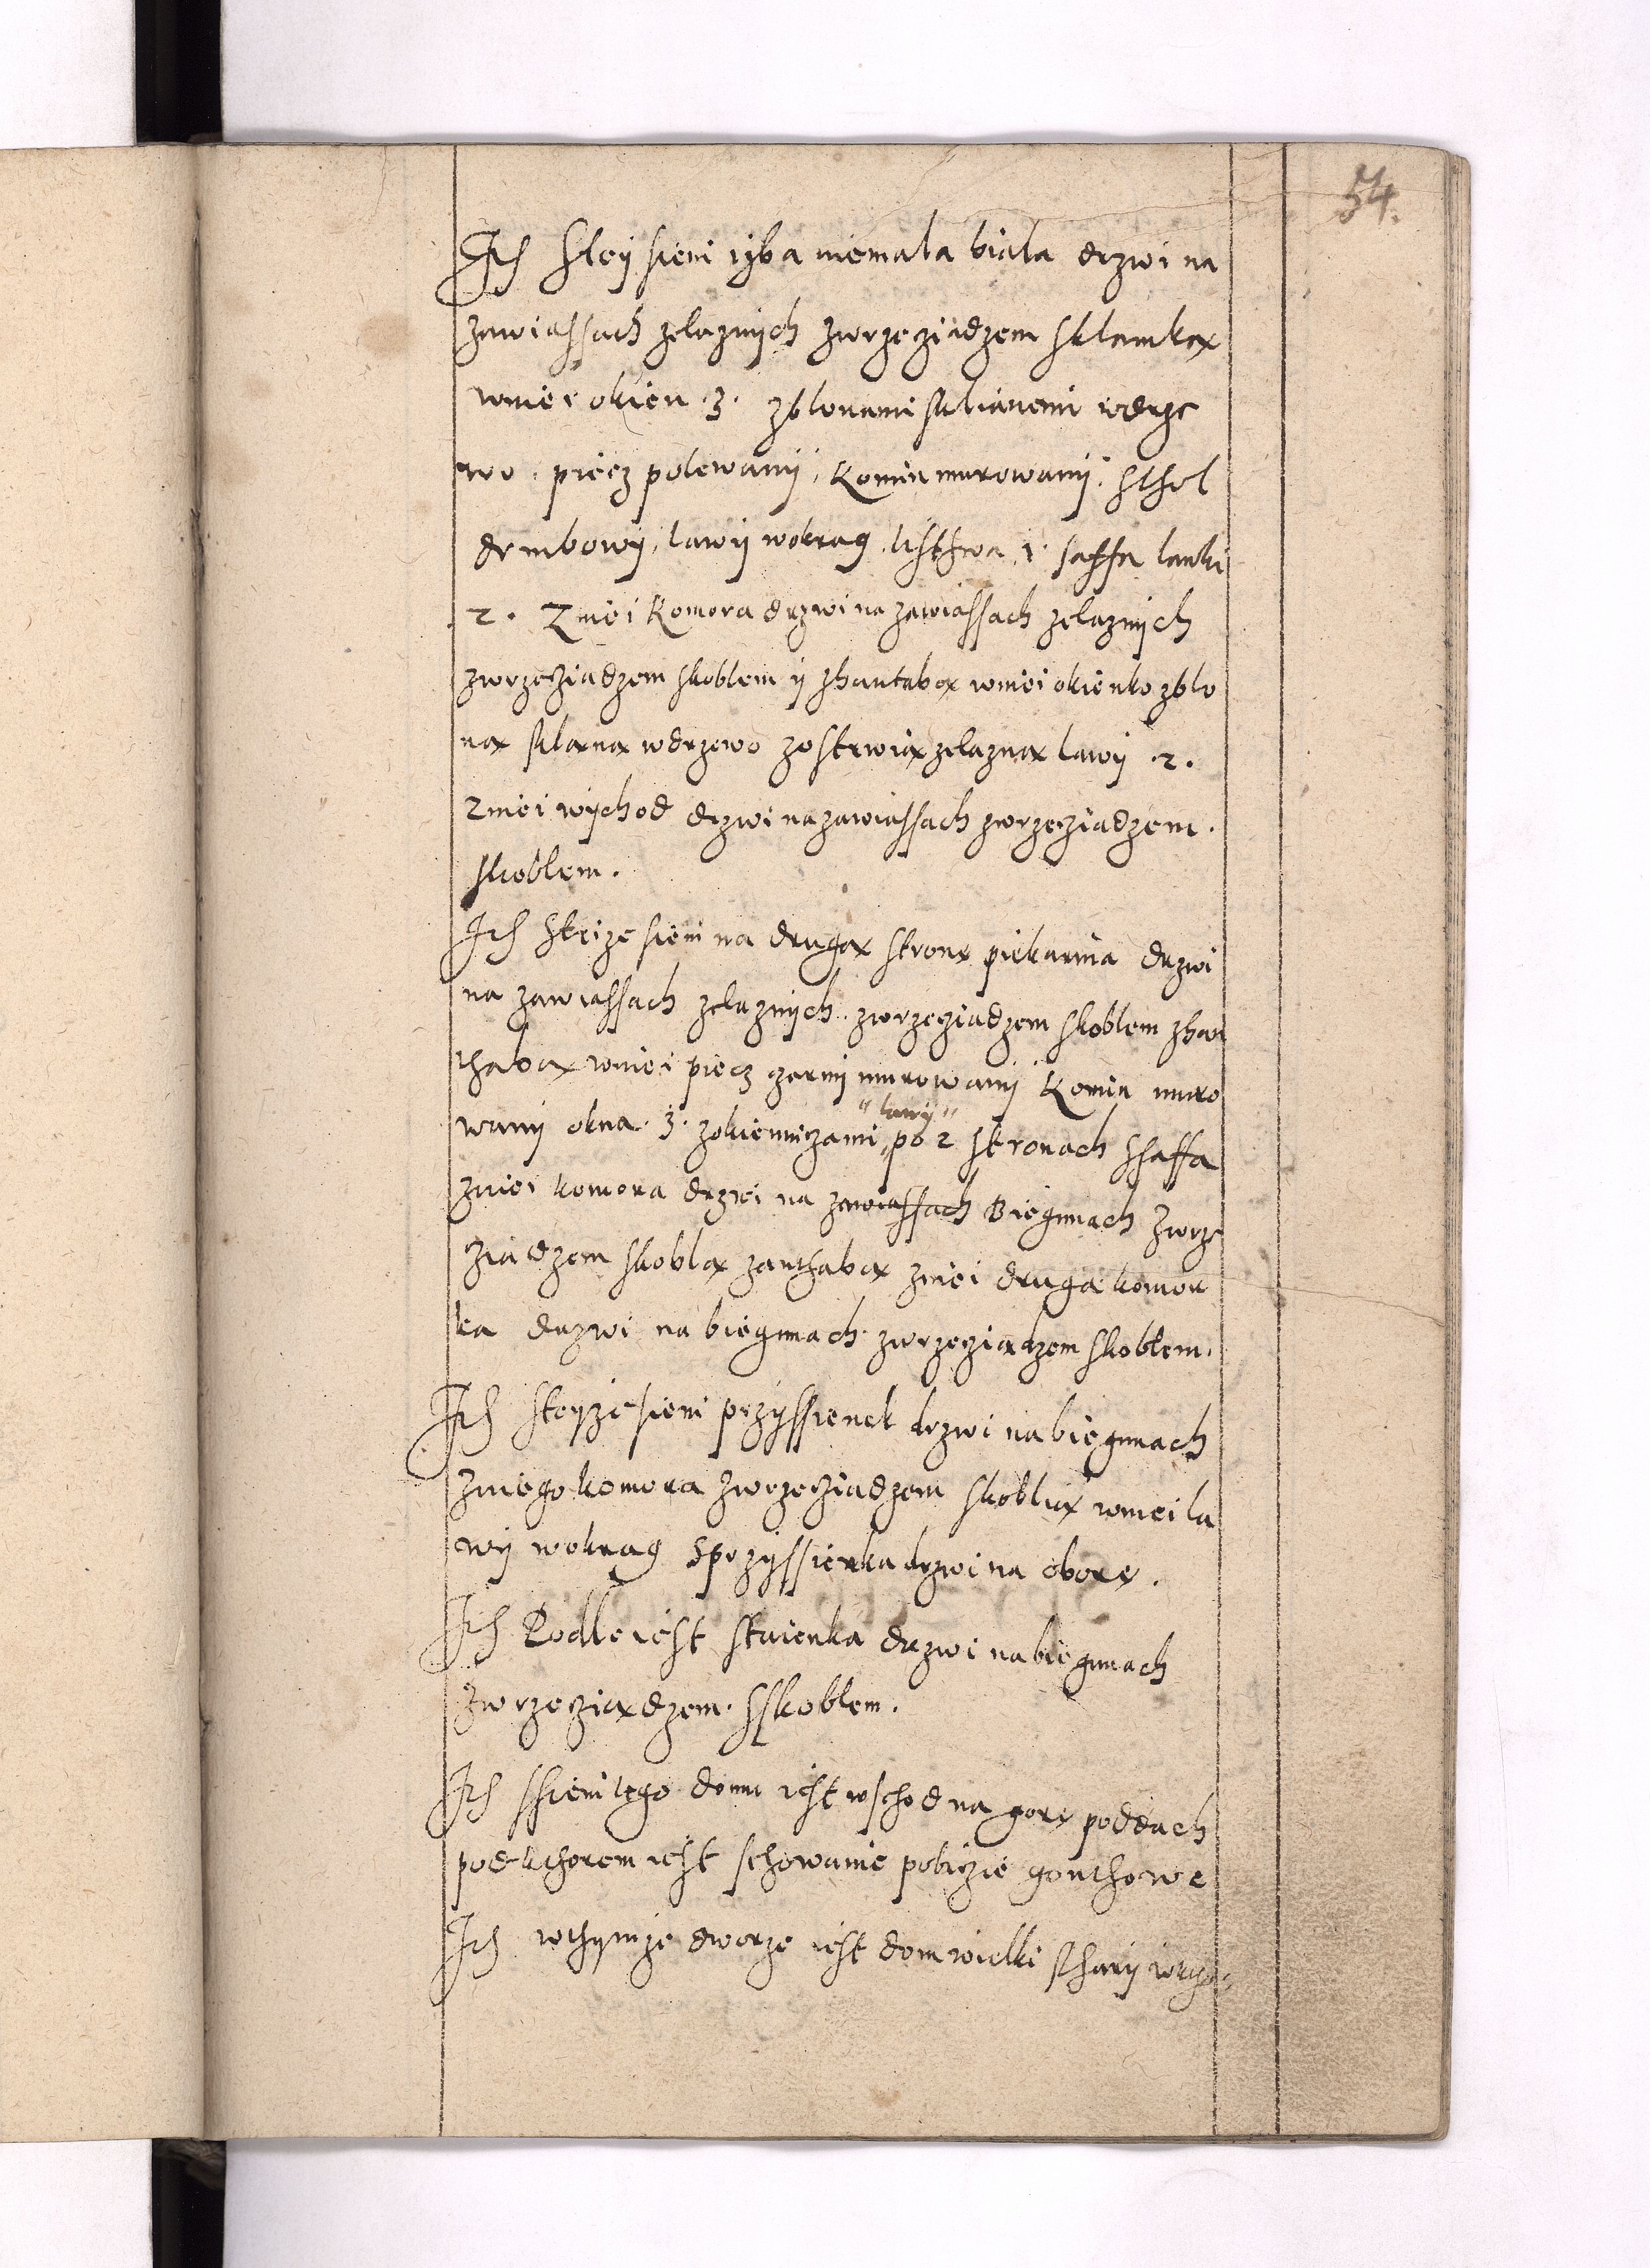 54.
Ith Stey sieni izba niemala biala drzwi na
zawiassach zelaznych zwrzeciadzem sklamkax
wniei okien .3. zblonami sklianemi wdrze
wo . piecz polewany, Komin murowany. Sthol
drmbowy, lawy wokrag listhwa 1. saffa lawki
2 . Zniei Komora drzwi na zawiassach zelaznych
zwrzecziadzem skoblem y zhantabax wniei okienko zblo
nax sklanax wdrzewo zostrwiax zelaznax lawy .2.
Zniei wychod drzwi na zawiassach zwrzecziadzem .
skoblem .
Ith Steize sieni na drugax stronx piekarnia drzwi
na zawiassach zelaznych . zwrzecziadzem skoblem zhan
thabax wniei piecz czarny murowany Komin muro
wany okna .3. zokienniczami "lawy" po 2 stronach shaffa
zniei komora drzwi na zawiassach Biegunach zwrze
ziadzem skoblax zanthabax zniei druga komor
ka drzwi na biegunach zwrzecziadzem skoblem .
Ith steyze sieni przyssienek drzwi na biegunach
zniego komora zwrzecziadzem skoblax wniei la
wy wokrag Sprzyssienka drzwi na oborx .
Ith Podle iest staienka drzwi na biegunach
zwrzecziaxdzem . sskoblem .
Ith ssieni tego domu iest wschod na gorx poddach
pod kthorem iest schowanie pobiczie gonthowe
Ith wthymze dworze iest dom wielki sthary